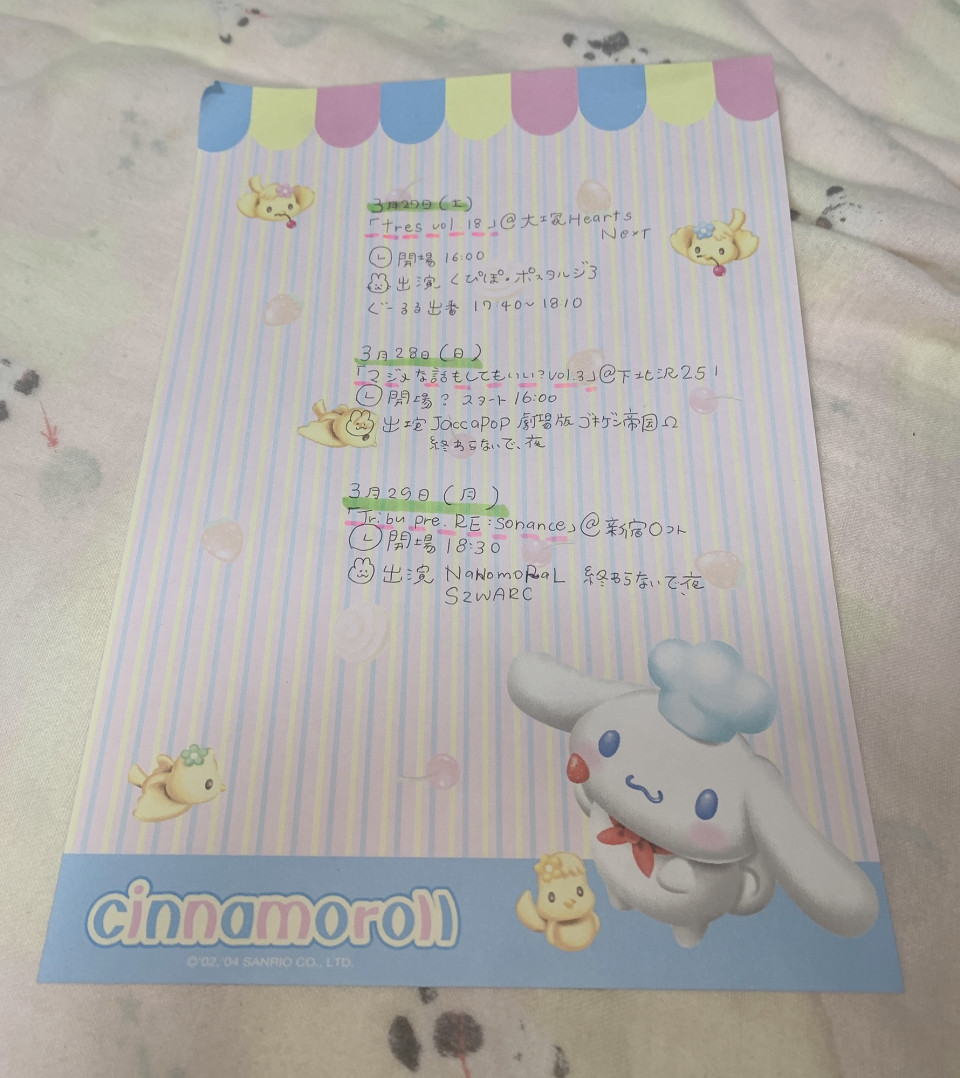 3月27日(土)
「tres vol.18」@大塚Hearts
Next
開場 16:00
出演 くぴぽ。ポスタルジ3
ぐーるる出番 17:40〜18:10
3月28日(日)
「マジメな話もしてもいい?vol.3」@下北沢251
開場? スタート16:00
出演 JaccaPoP 劇場版ゴキゲン帝国Ω
終わらないで、夜
3月29日(月)
「Tribu pre. RE:sonance」@新宿ロフト
開場 18:30
出演 NaNoMoRaL 終わらないで、夜
S2WARC
cinnamoroll
©'02,'04 SANRIO CO., LTD.